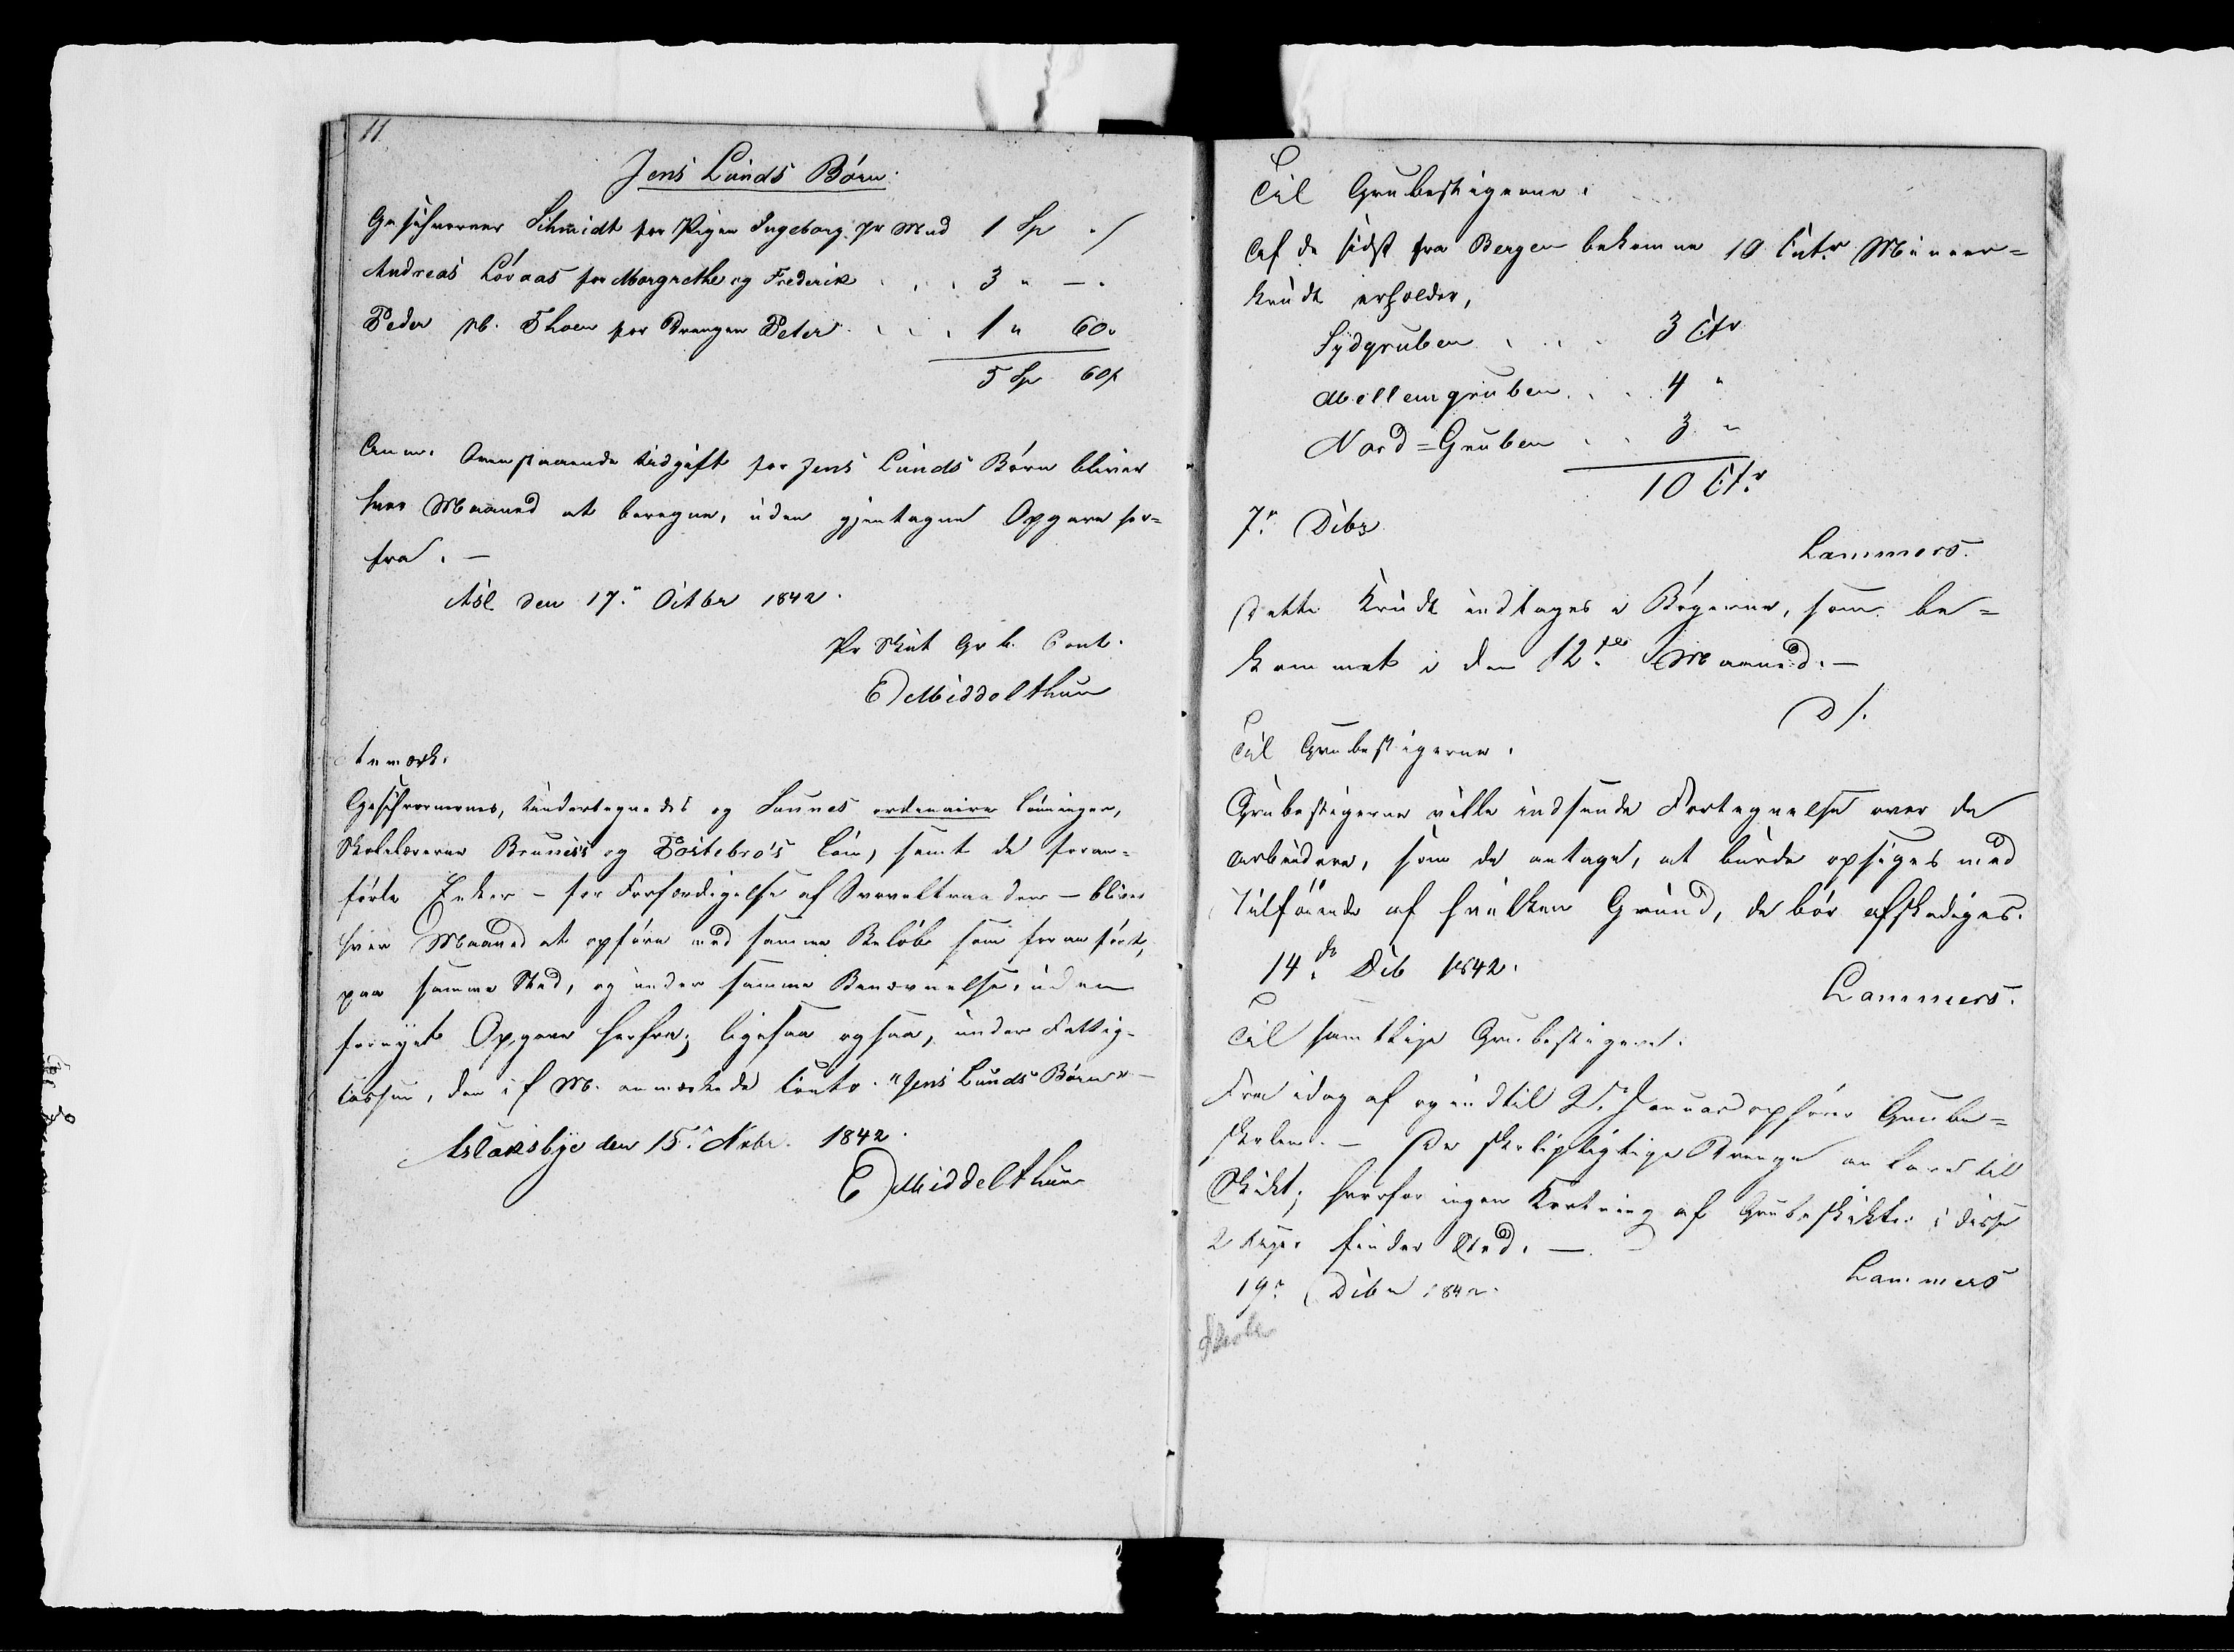 11.
Jens Lunds Børn.
Geschworner Schmidt for Pigen Ingeborg pr Mnd 1 Sp
Andreas Løvaas for Margrethe og Frederik . . . 3 " — "
Peder Thoen for Drengen Peter . . . 1 " 60.
5 Sp 60ß
Anm. Ovenstaaende Udgift for Jens Lunds Børn bliver
hver Maaned at beregne, uden gjentagne Opgave her=
fra. —
den 17.de Octbr 1842.
Pr
E Middelthun
Anmærk.
Geschwornernes, Undertegnedes og ordinaire Lønninger,
Skolelærerne og Løn, samt de foran=
førte Enker – for Forfærdigelse af Svovltraaden – bliver
hver Maaned at opføre med samme Beløb som foran ført,
paa samme Sted, og under samme Benævnelse, uden
fornyet Opgave herfra; ligesaa ogsaa, under Fattig-
Cassen, den i f. M. anmærkede Conto. "Jens Lunds Børn" —
Aslaksbye den 15.de Novbr. 1842.
E Middelthun
Til Grubestigerne.
Af de sidst fra Bergen bekomne 10 Cntr Minner=
krudt erholder,
Sydgruben . . . 3 Ctr
Mellemgruben . . . 4 "
Nord=Gruben . . 3 "
10 Ctr
7.de Decbr
Lammers.
Dette Krudt indtages i Bøgerne, som be=
kommet i den 12.te Maaned. —
D/.
Til Grubestigerne.
Grubestigerne ville indsende Fortegnelse over de
Arbeidere, som de antage, at burde opsiges med
Tilføiende af hvilken Grund, de bør afskediges.
14.de Dcb 1842.
Lammers.
Til samtlige Grubestigere.
Fra idag af og indtil 2.de Januar ophører Grube=
skolen. — De skolepligtige Drenge an fare til
Skikt; hvorfor ingen Kortning af Grubeskikter i disse
2 Uger finder Sted. —
19.de Dcbr 1842.
Lammers
Skole